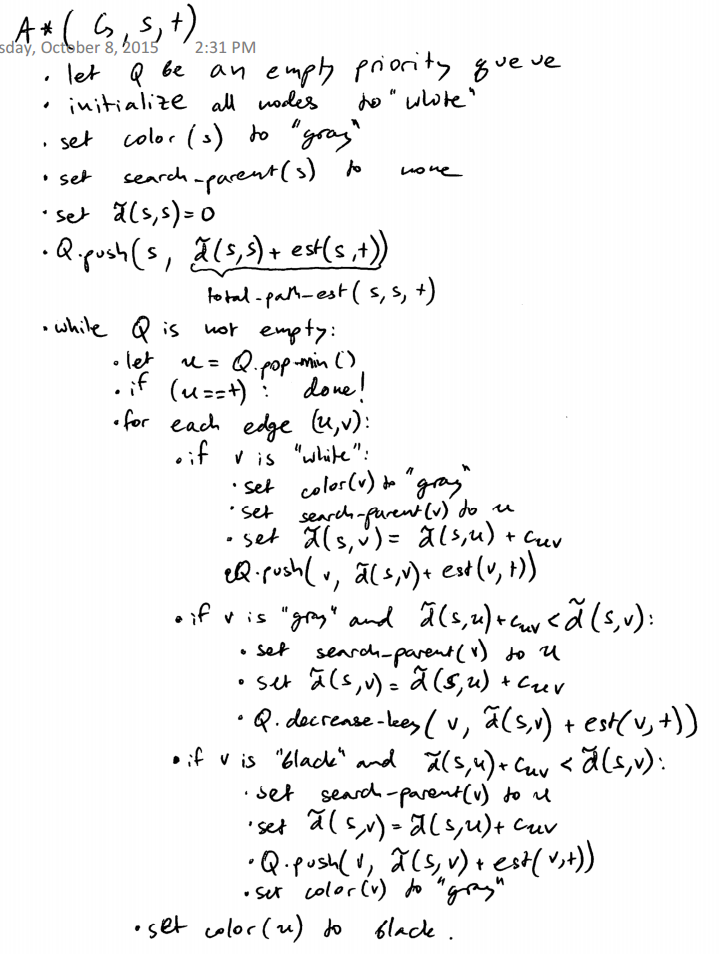 A*(G, s, t)
sday, October 8, 2015 2:31 PM
· let Q be an empty priority queue
· initialize all nodes to "white"
· set color(s) to "gray"
· set search-parent(s) to none
· set d̃(s,s)=0
· Q.push(s, d̃(s,s) + est(s,t))
total-path-est(s, s, t)
· while Q is not empty:
· let u = Q.pop-min()
· if (u==t) : done!
· for each edge (u,v):
· if v is "white":
· set color(v) to "gray"
· set search-parent(v) to u
· set d̃(s,v) = d̃(s,u) + c_uv
Q.push(v, d̃(s,v)+ est(v,t))
· if v is "gray" and d̃(s,u)+c_uv < d̃(s,v):
· set search-parent(v) to u
· set d̃(s,v) = d̃(s,u) + c_uv
· Q.decrease-key(v, d̃(s,v) + est(v,t))
· if v is "black" and d̃(s,u)+c_uv < d̃(s,v):
· set search-parent(v) to u
· set d̃(s,v) = d̃(s,u)+ c_uv
· Q.push(v, d̃(s,v) + est(v,t))
· set color(v) to "gray"
· set color(u) to black.